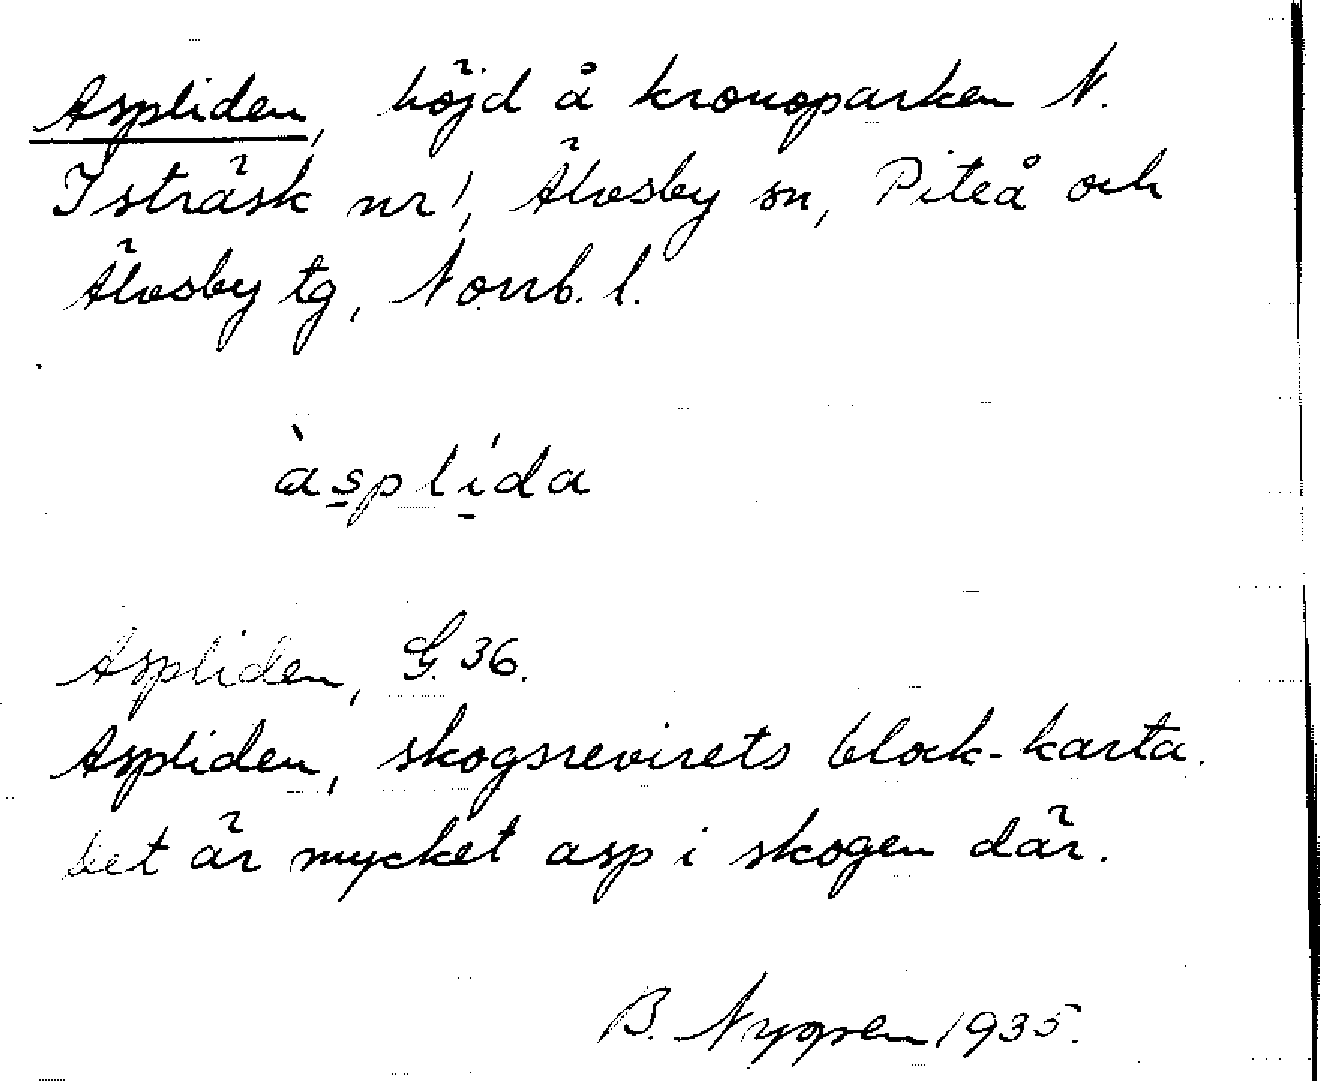 Aspliden, höjd å kronoparken N.
Isträsk nr 1, Älvsby sn, Piteå och
Älvsby tg, Norrb. l.
àsplída
Aspliden, G. 36.
Aspliden, skogsrevirets block-karta.
Det är mycket asp i skogen där.
B. 1935.